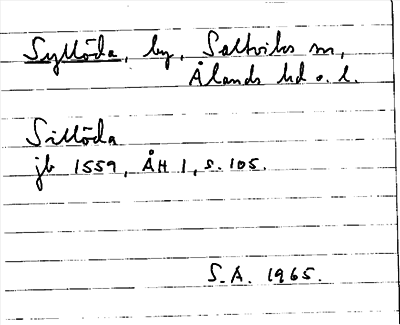 Syllöda, by, Saltviks sn,
Ålands hd o. l.
Sillöda
jb 1559, ÅH 1, s. 105.
S.A. 1965.